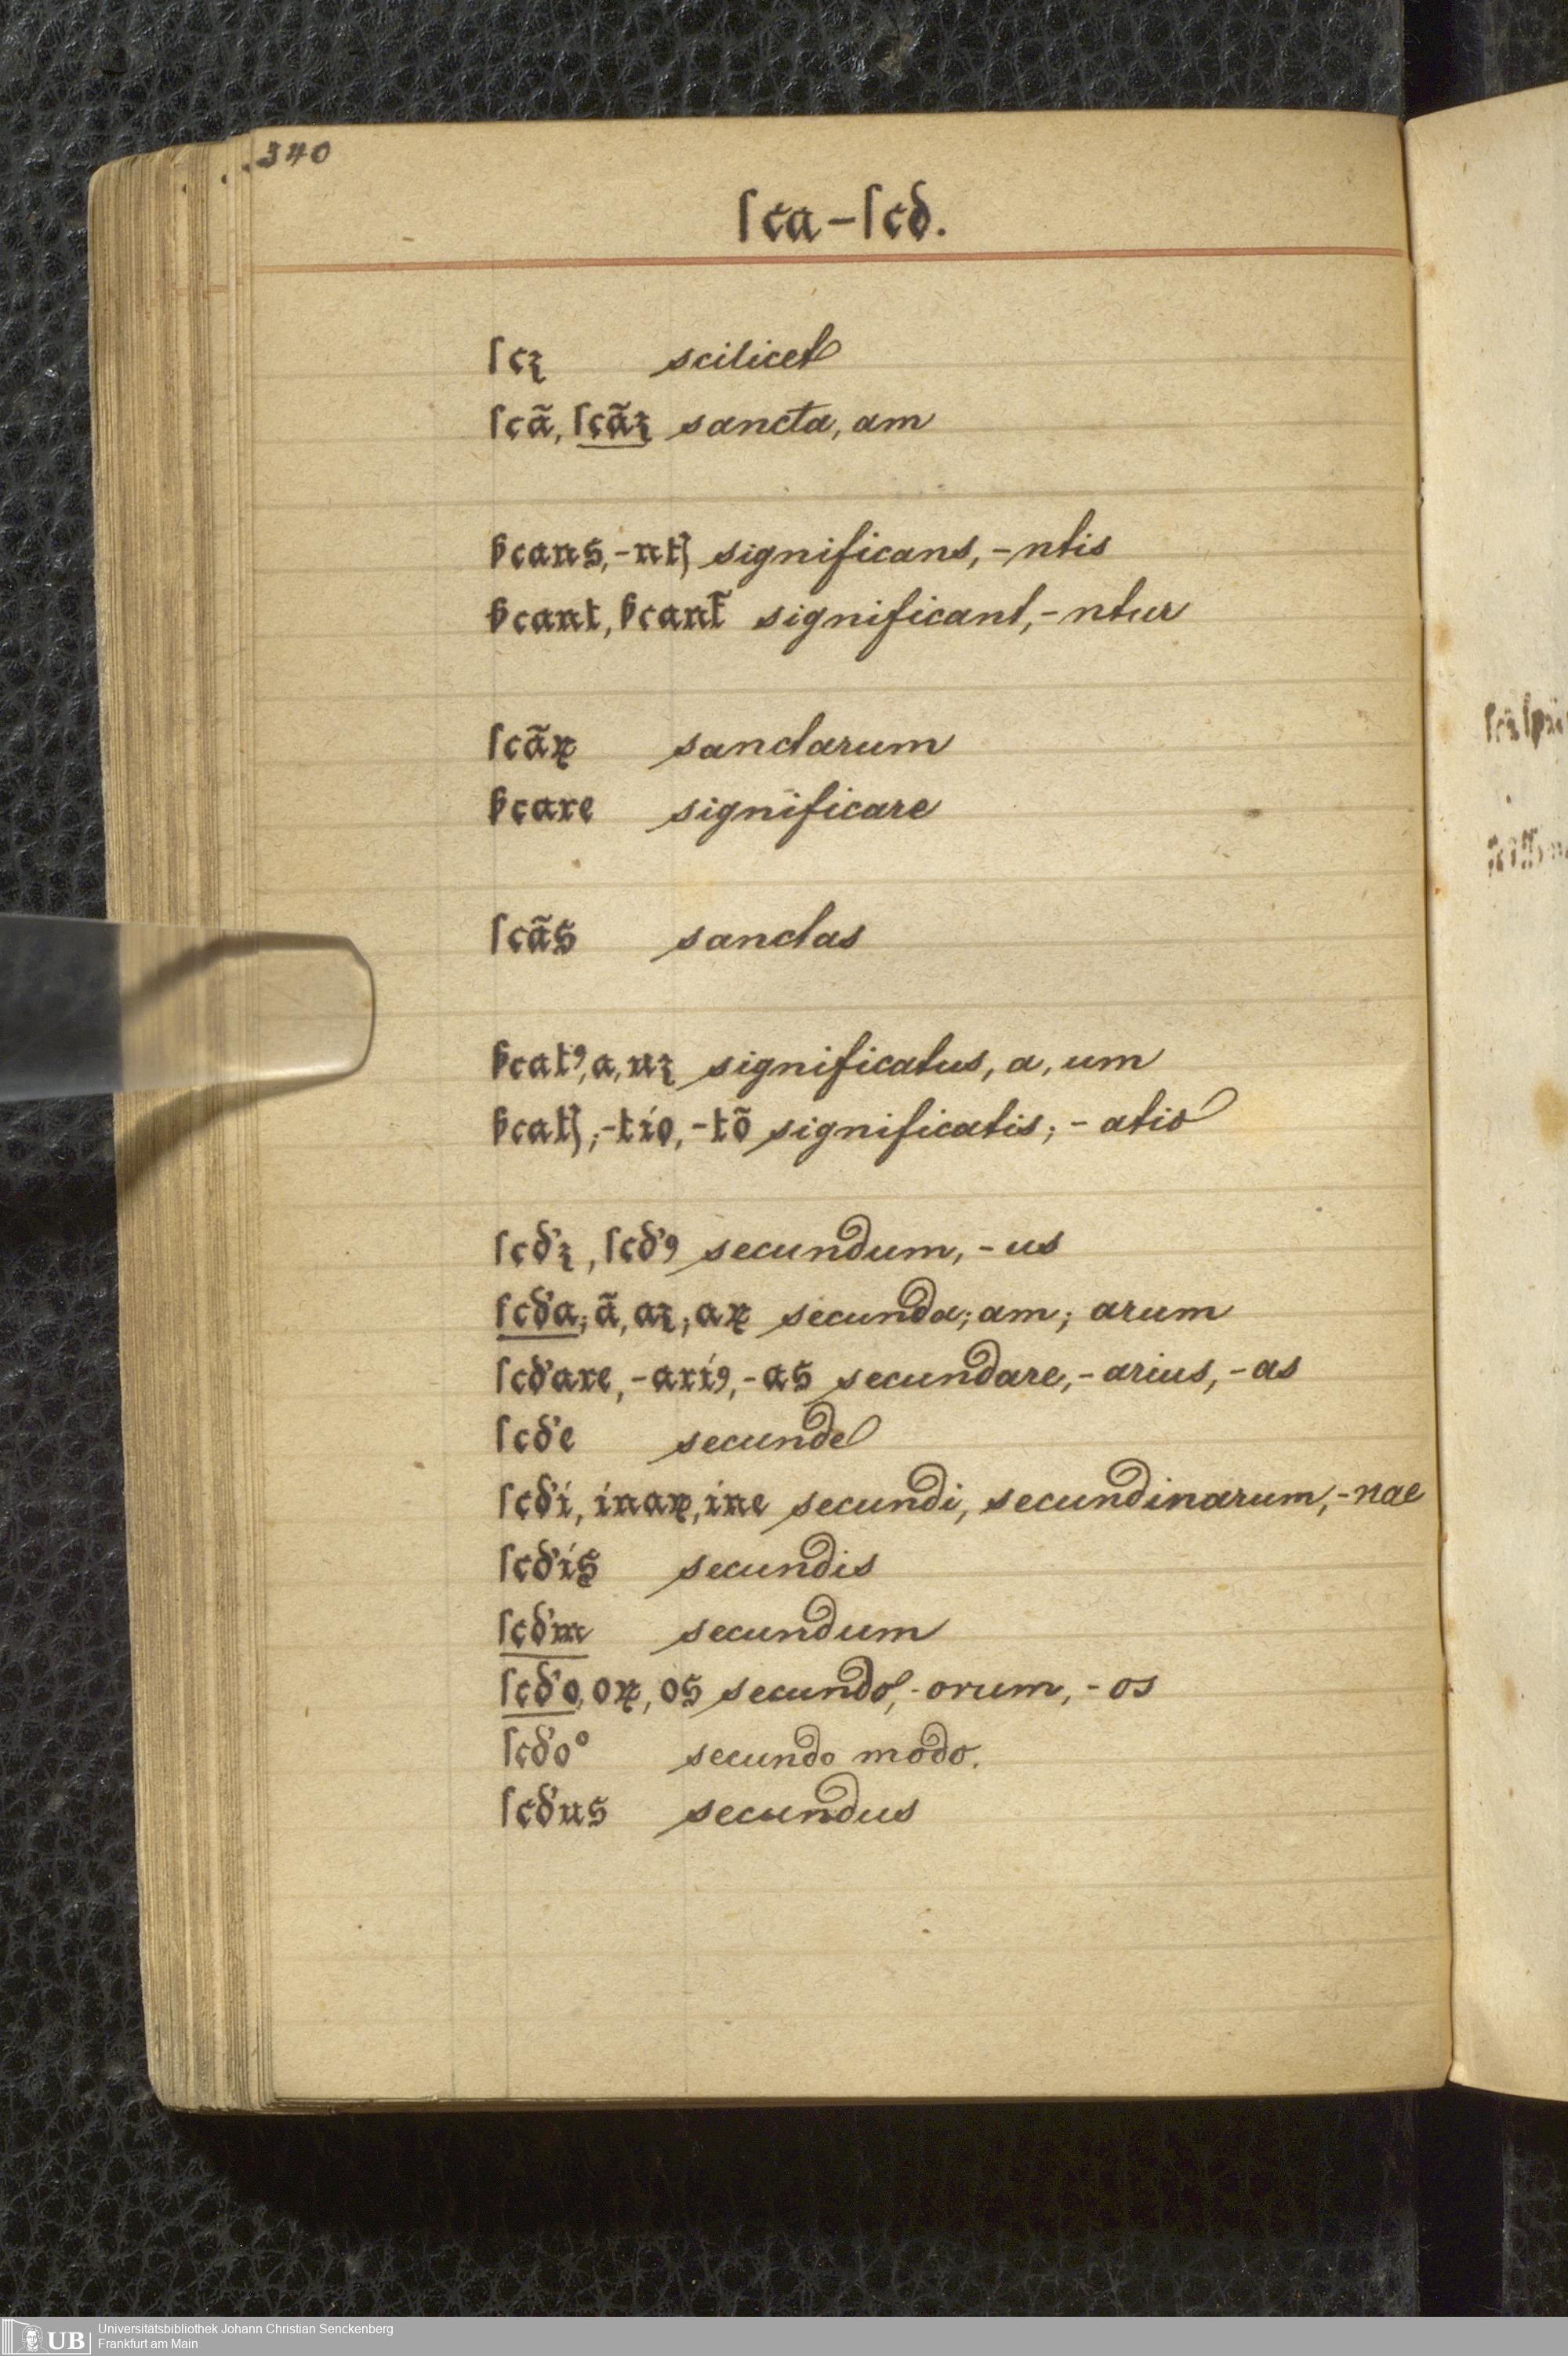 340
ſca – ſcd.
ſcꝫ scilicet
ſcã, ſcãꝫ sancta, am
ẜcans, -ntꝭ significans, -ntis
ẜcant, ẜcant̃ significant, -ntur
ſcãꝝ sanctarum
ẜcare significare
ſcãs sanctas
ẜcatꝰ, a, uꝫ significatus, a, um
ẜcatꝭ; -tio, -tõ significatis; -atio
ſcd'ꝫ, ſcd'ꝯ secundum, -us
ſcd'a; ã, aꝫ; aꝝ secunda; am; arum
ſcd'are, -ariꝯ, -as secundare, -arius, -as
ſcd'e secunde
ſcd'i, inaꝝ, ine secundi, secundinarum, -nae
ſcd'is secundis
ſcd'm secundum
ſcd'o, oꝝ, os secundo, -orum, -os
ſcd'o° secundo modo.
ſcd'us secundus
UB
Universitätsbibliothek Johann Christian Senckenberg
Frankfurt am Main